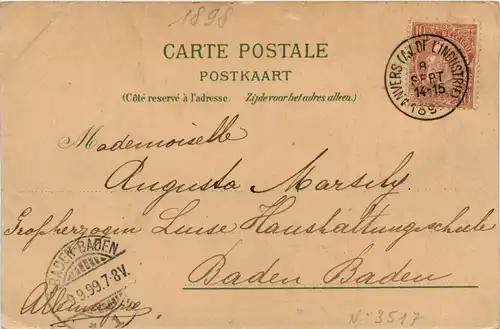 1898
CARTE POSTALE
POSTKAART
(Côté reservé à l'adresse. Zijde voor het adres alleen.)
10
ANVERS (AV. DE L'INDUSTRIE)
8
SEPT
14-15
189
Mademoiselle
Augusta Marsily
Grofherzogin Luise Haushaltungsschule
Baden Baden
BADEN-BADEN
9.9.99.7-8V.
Allemagne
N- 3517